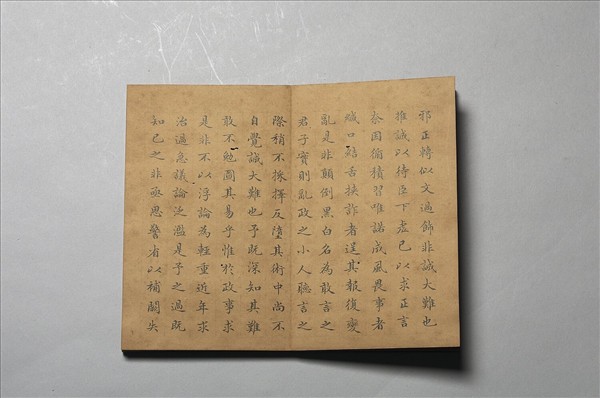 邪正轉似文過飾非誠大難也
推誠以待臣下虛己以求正言
奈因循積習唯諾成風畏事者
緘口結舌挾詐者逞其報復變
亂是非顛倒黑白名為敢言之
君子實則亂政之小人聽言之
際稍不採擇反墮其術中尚不
自覺誠大難也予既深知其難
敢不勉圖其易乎惟於政事求
是非不以浮論為輕重近年求
治過急議論泛濫是予之過既
知己之非亟思警省以補闕失